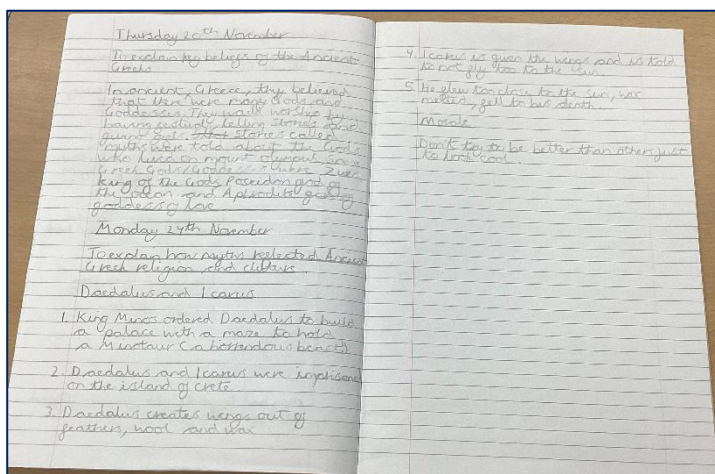 Thursday 20th November
To explain key beliefs of the Ancient
Greeks
In ancient, Greece, they believed
that there were many Gods and
Goddesses. They would worship by
having festivals, telling stories and
giving gifts. stories called
myths were told about the Gods
who lived on mount olympus. Some
Greek Gods/Goddesses were Zues
king of the Gods Poseidon god of
the ocean and Aphrodite
goddess of love
Monday 24th November
To explain how myths reflected Ancient
Greek religion and culture
Daedalus and Icarus
1. King Minos ordered Daedalus to build
a palace with a maze to hold
a Minotaur (a horrendous beast)
2. Daedalus and Icarus were imprisoned
on the island of crete.
3. Daedalus creates wings out of
feathers, wool and wax
4. Icarus is given the wings and is told
to not fly too to the sun.
5. He flew too close to the sun, wax
melted, fell to his death.
Morale
Don't try to be better than others just
to look cool.